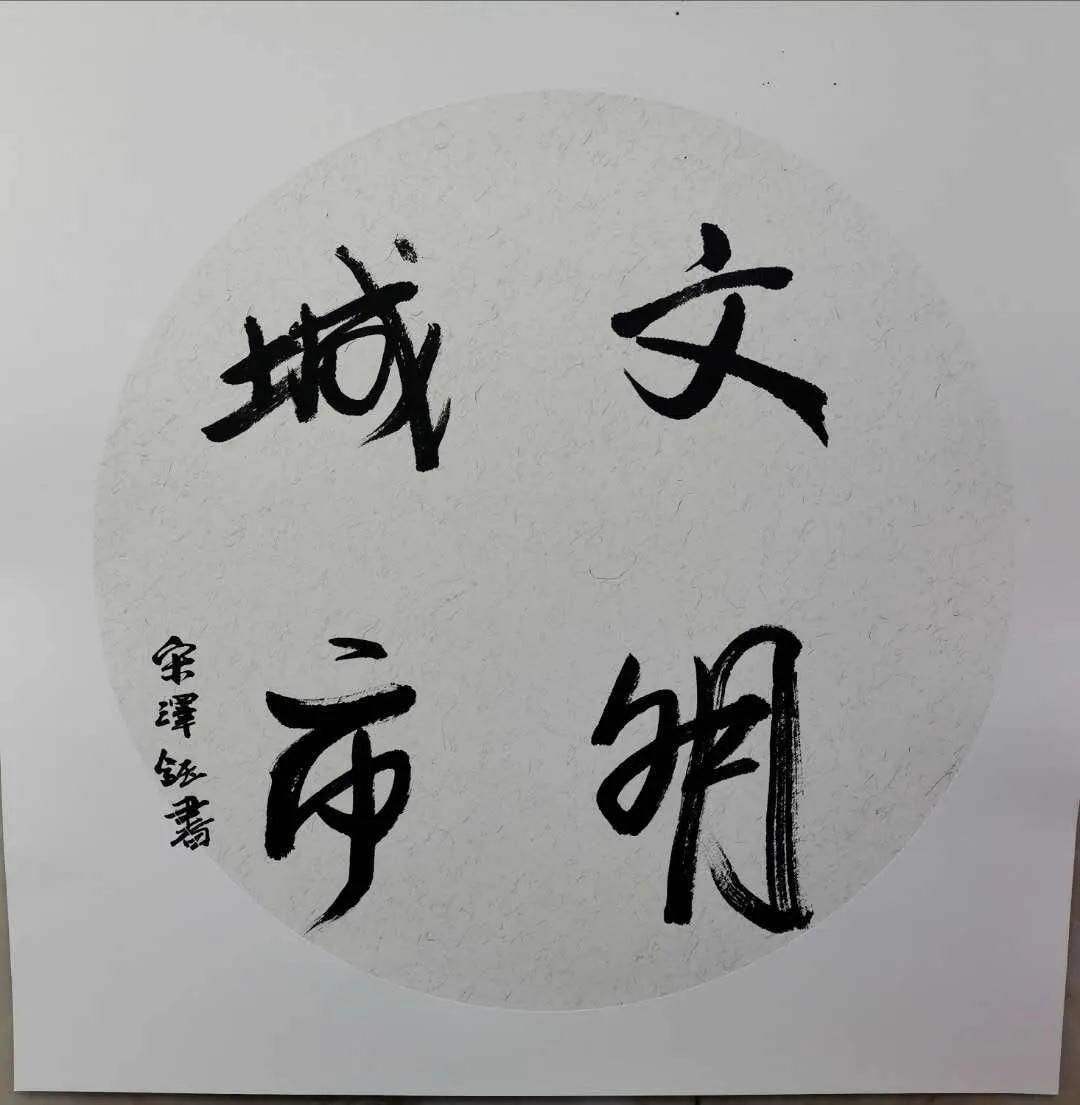 文明
城市
宋澤鈺書